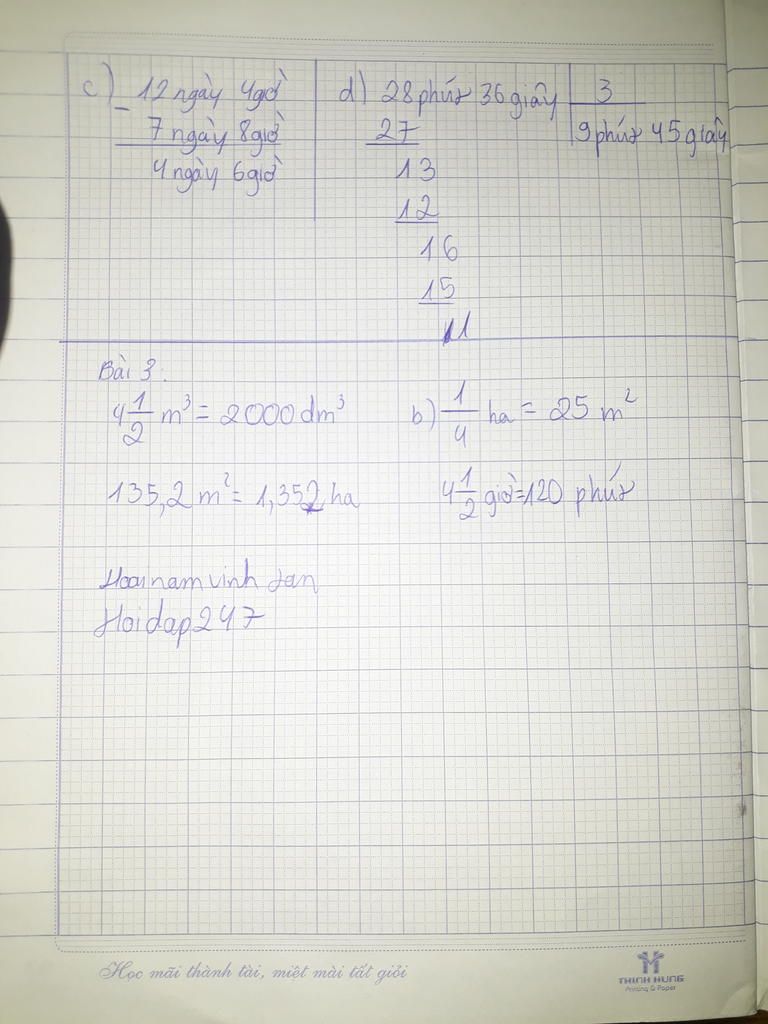 c) 12 ngày 4 giờ
- 7 ngày 8 giờ
4 ngày 6 giờ
d) 28 phút 36 giây | 3
27 | 9 phút 45 giây
13
12
16
15
11
Bài 3:
4 1/2 m³ = 2000 dm³
135,2 m² = 1,352 ha
b) 1/4 ha = 25 m²
4 1/2 giờ = 120 phút
Hoainamvinh
Hoidap247
Học mãi thành tài, miệt mài tất giỏi
THINH HUNG
Printing & Paper